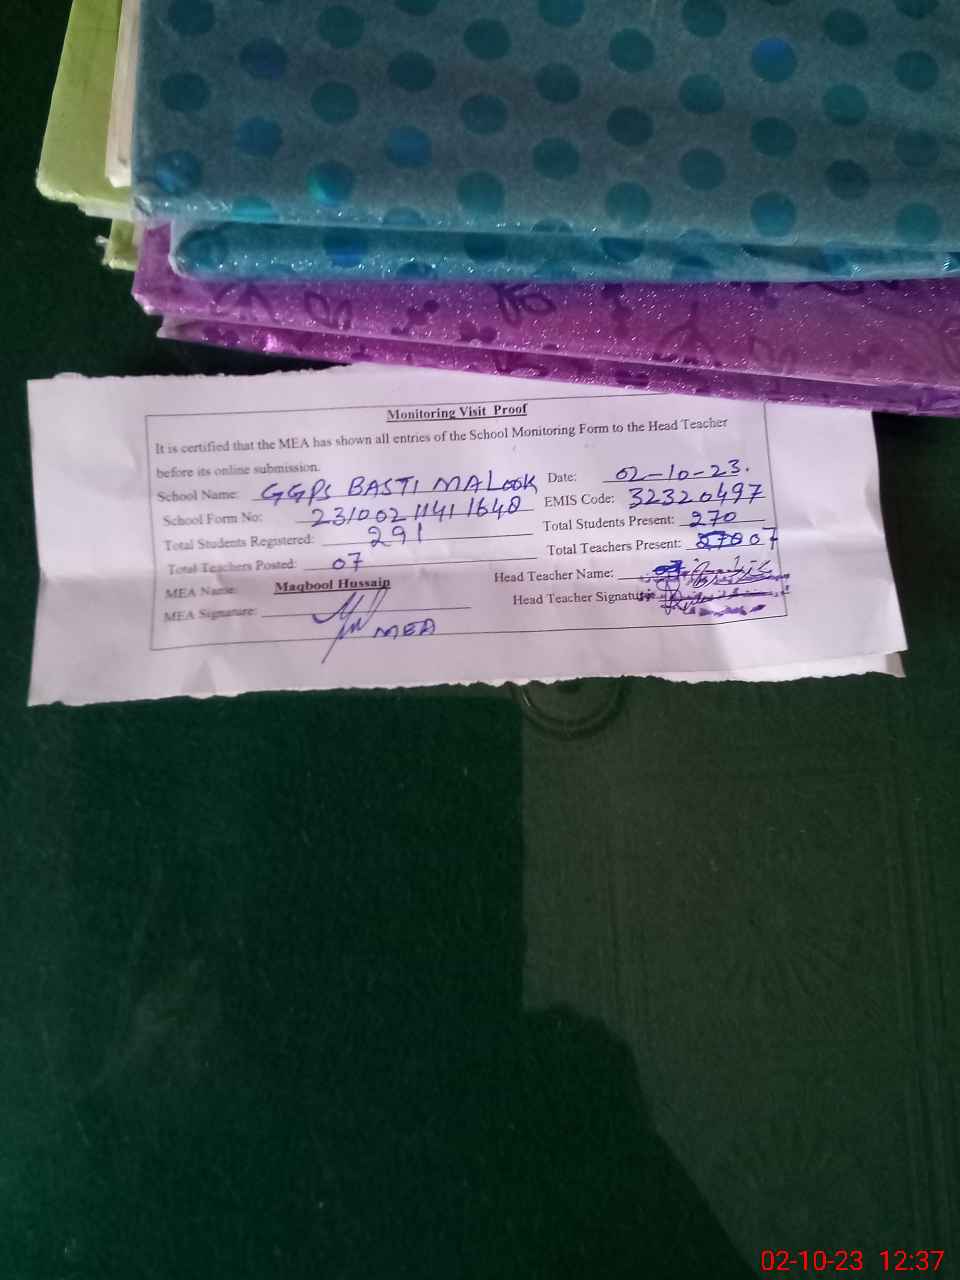 Monitoring Visit Proof
It is certified that the MEA has shown all entries of the School Monitoring Form to the Head Teacher
before its online submission.
School Name: GGPS BASTI MALOOK Date: 02-10-23.
School Form No: 23100211411648 EMIS Code: 32320497
Total Students Registered: 291 Total Students Present: 270
Total Teachers Posted: 07 Total Teachers Present: 07
MEA Name: Maqbool Hussain Head Teacher Name:
MEA Signature: MEA Head Teacher Signature:
02-10-23 12:37